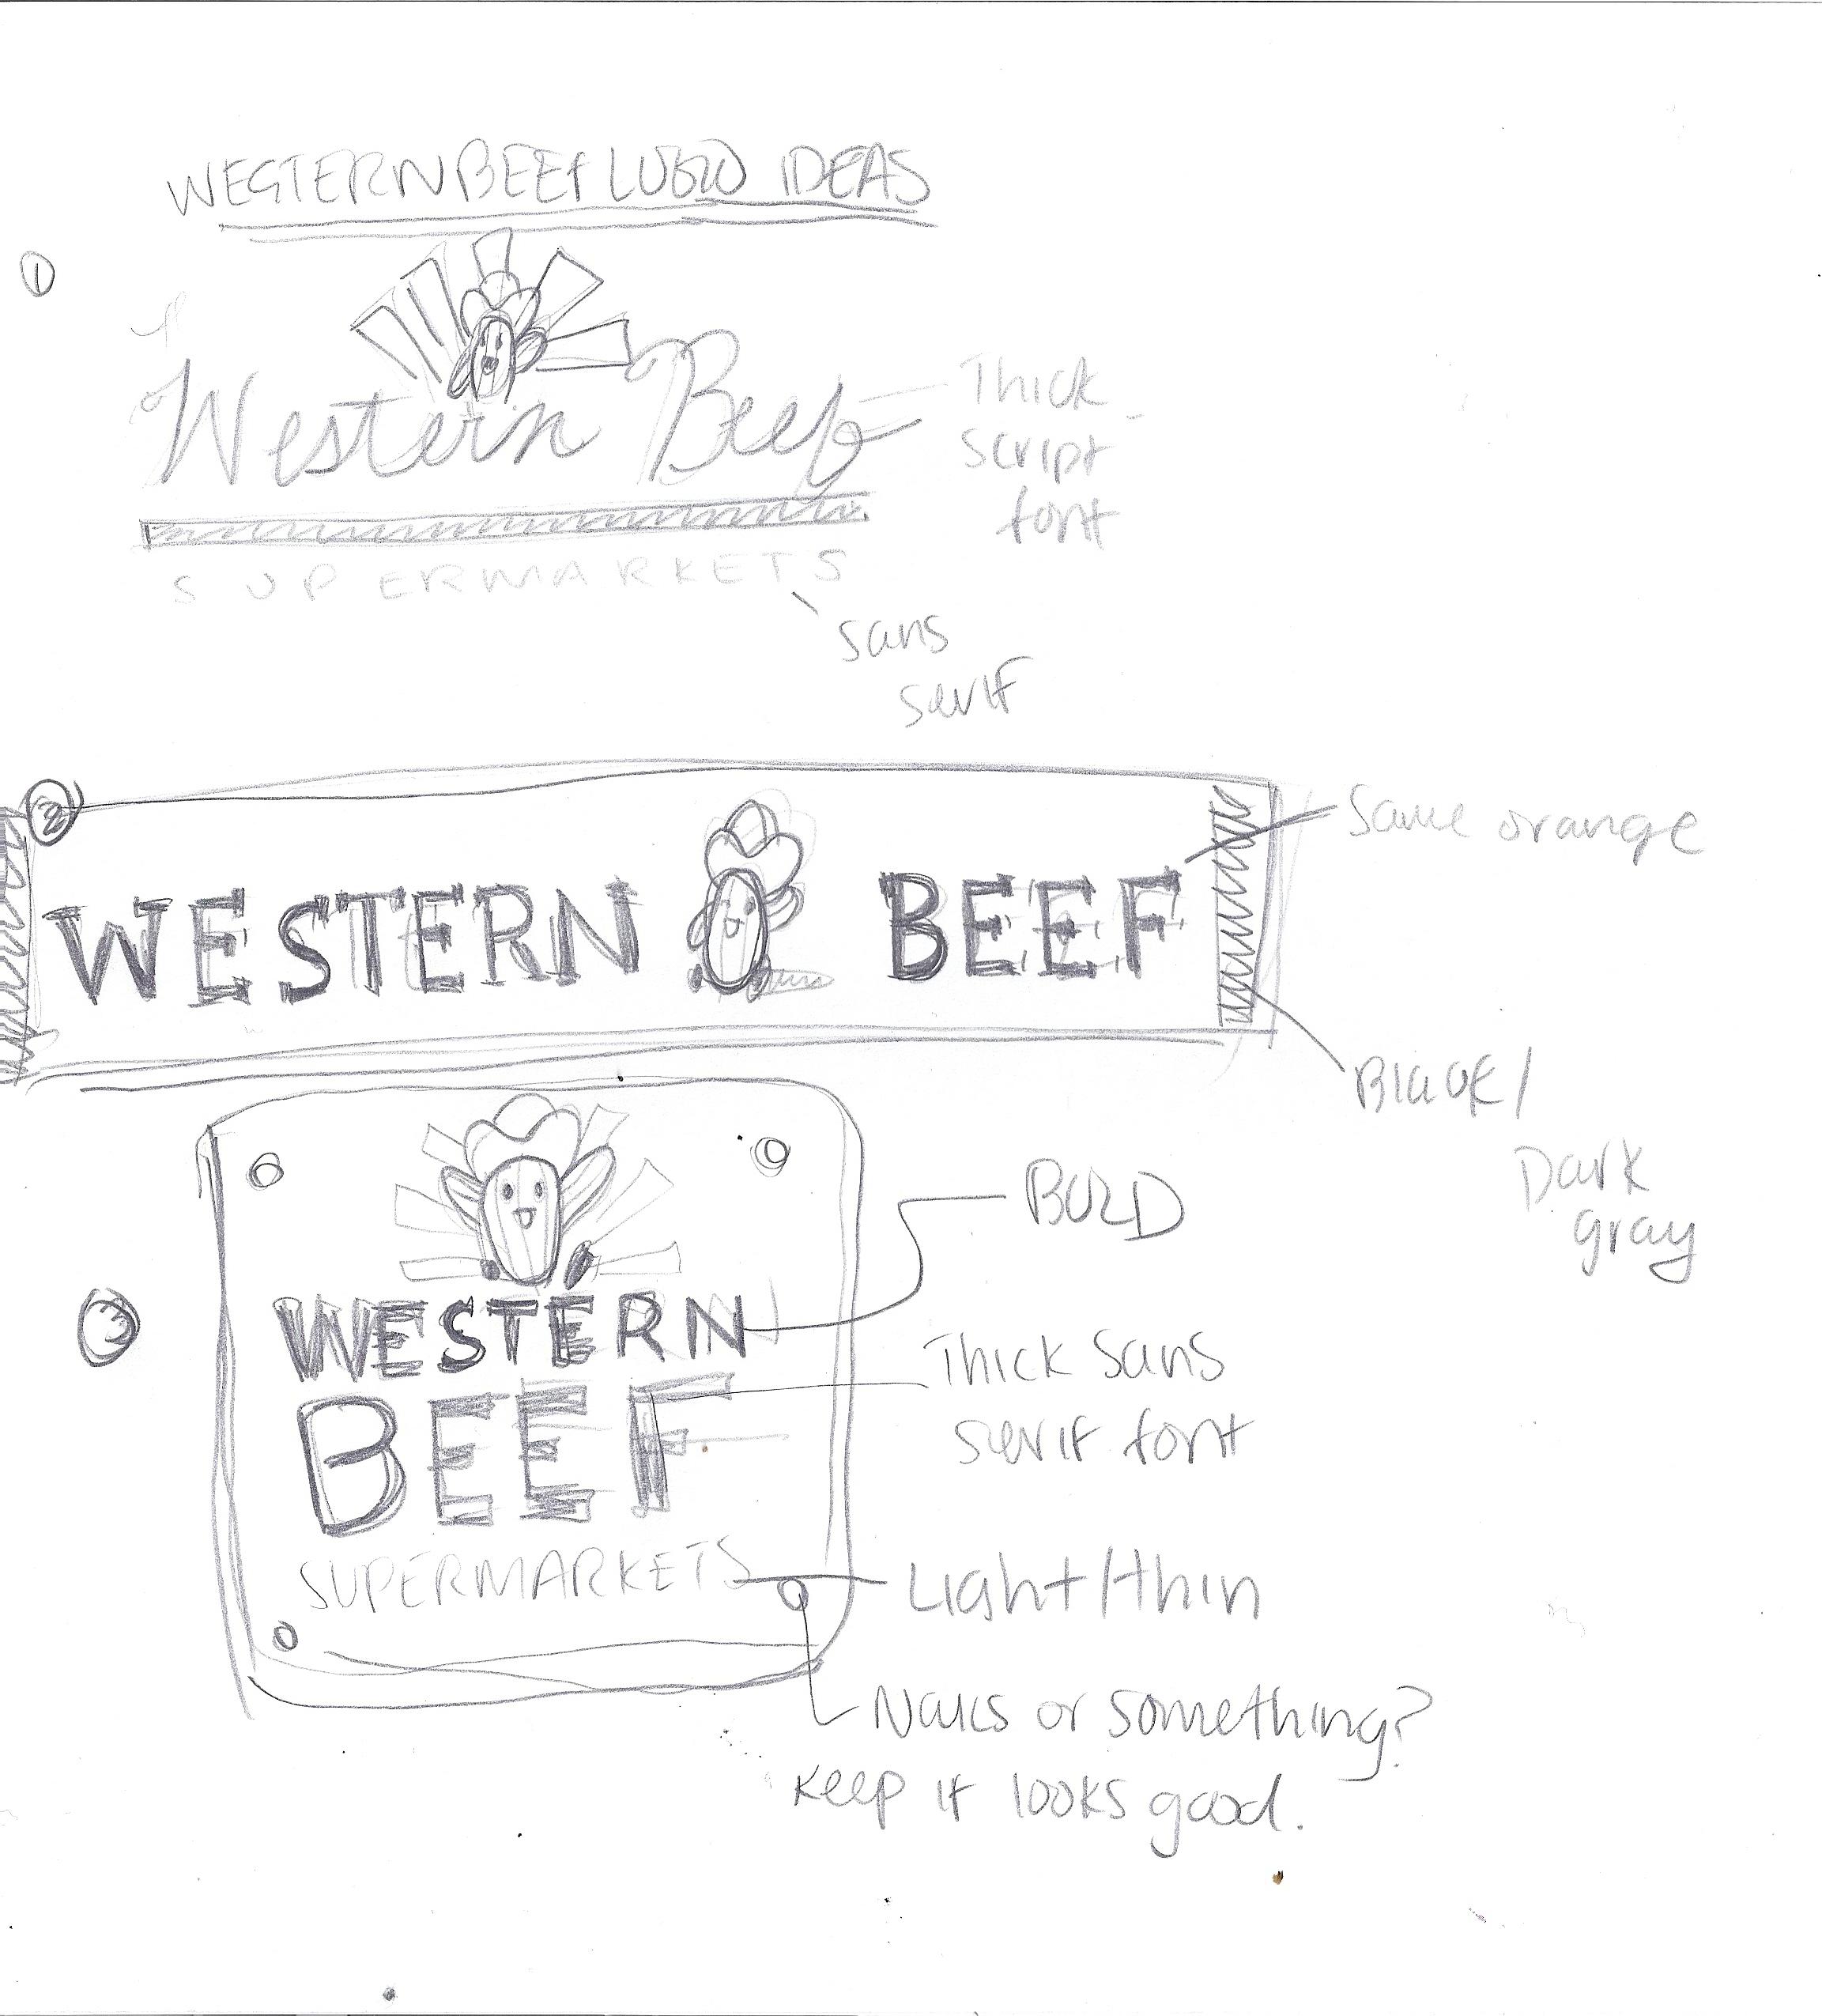 WESTERN BEEF LOGO IDEAS
1
Western Beef
Thick
script
font
SUPERMARKETS
sans
serif
2
WESTERN BEEF
Same orange
Black/
Dark
gray
3
BOLD
WESTERN
BEEF
Thick sans
serif font
SUPERMARKETS
Light/thin
Nails or something?
Keep if looks good.